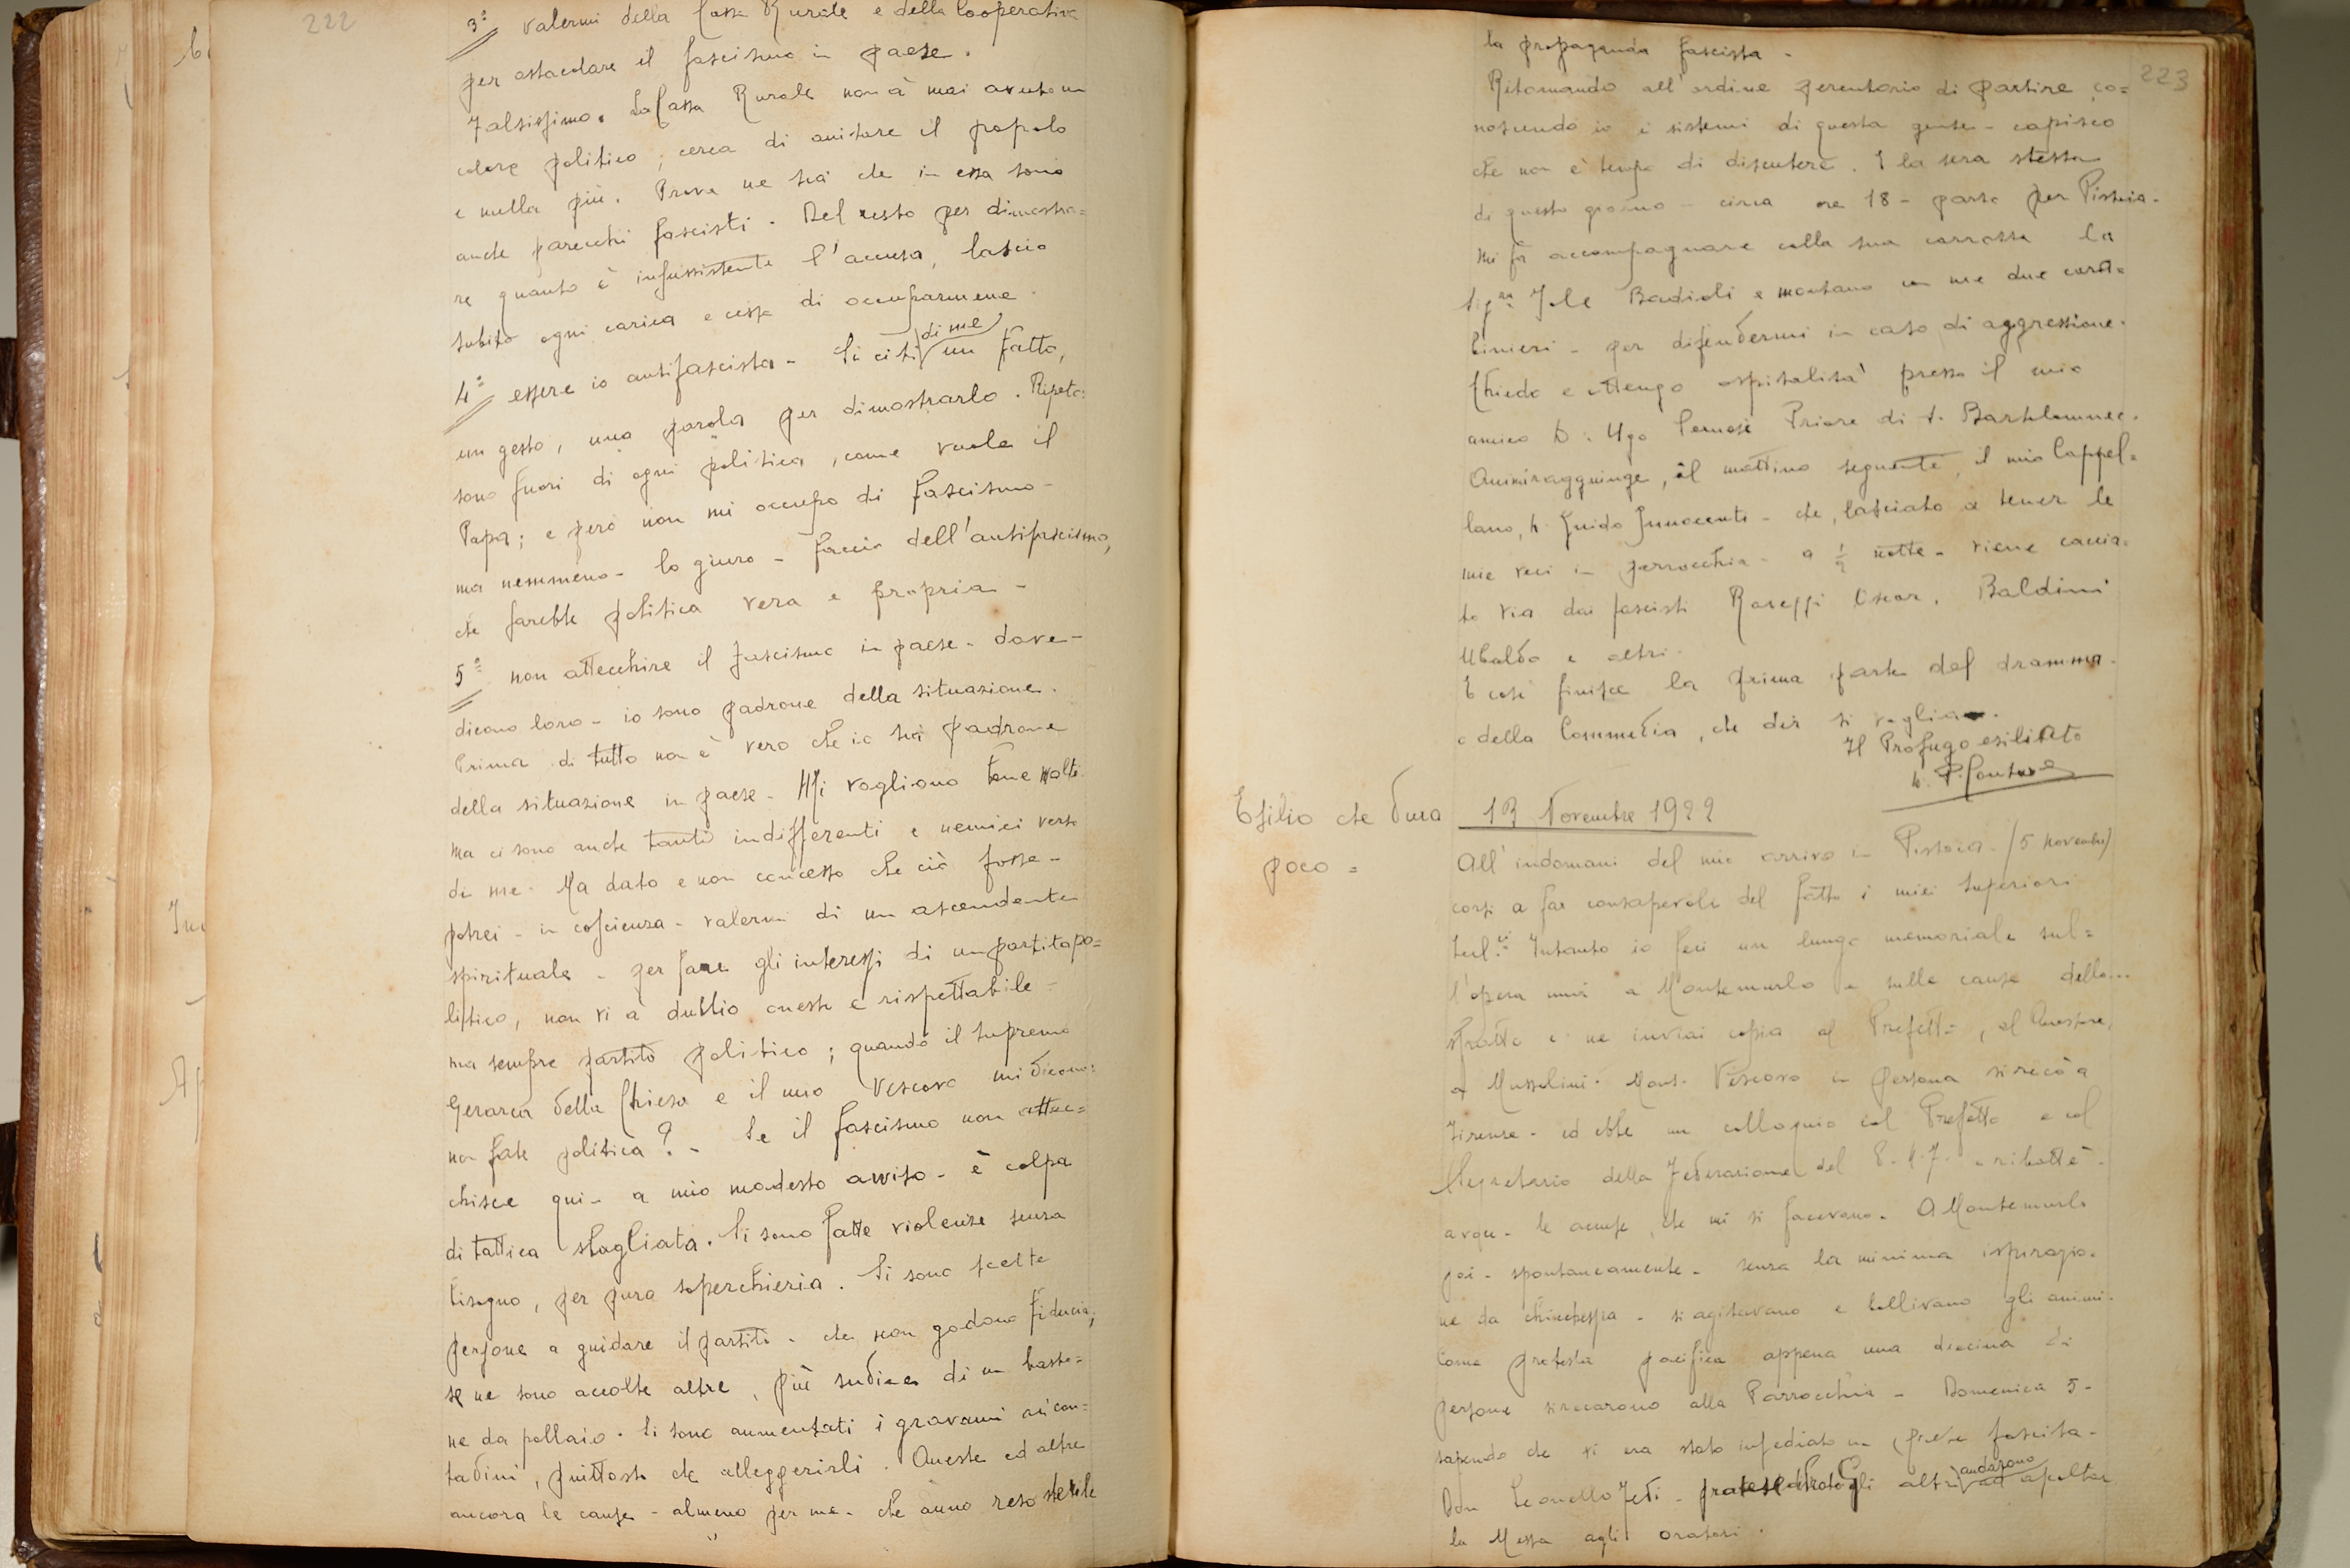 222
3ª valermi della Cassa Rurale e della Cooperativa
per ostacolare il fascismo in paese.
Falsissimo. La Cassa Rurale non à mai avuto un
colore politico, cerca di aiutare il popolo
e nulla più. Prova ne sia che in essa sono
anche parecchi fascisti. Del resto per dimostra=
re quanto è insussistente l'accusa, lascio
subito ogni carica e cesso di occuparmene.
4ª essere io antifascista - Si citi di me un fatto,
un gesto, una parola per dimostrarlo. Ripeto:
sono fuori di ogni politica, come vuole il
Papa; e però non mi occupo di fascismo -
ma nemmeno - lo giuro - faccio dell'antifascismo,
che sarebbe politica vera e propria -
5ª non attecchire il fascismo in paese - dove -
dicono loro - io sono padrone della situazione.
Prima di tutto non è vero che io sia padrone
della situazione in paese. Mi vogliono bene molti
ma ci sono anche tanti indifferenti e nemici verso
di me. Ma dato e non concesso che ciò fosse -
potrei - in coscienza - valermi di un ascendente
spirituale - per fare gli interessi di un partito po=
litico, non vi à dubbio onesto e rispettabile -
ma sempre partito politico; quando il supremo
Gerarca della Chiesa e il mio Vescovo mi dicono:
non fate politica? - Se il fascismo non attec=
chisce qui - a mio modesto avviso - è colpa
di tattica sbagliata. Si sono fatte violenze senza
bisogno, per pura soperchieria. Si sono scelte
persone a guidare il partito - che non godono fiducia;
se ne sono accolte altre, più sudice di un basto=
ne da pollaio. Si sono aumentati i gravami ai con=
tadini, piuttosto che alleggerirli. Queste ed altre
ancora le cause - almeno per me - che ànno reso sterile
223
la propaganda fascista -
Ritornando all'ordine perentorio di partire, co=
noscendo io i sistemi di questa gente - capisco
che non è tempo di discutere. E la sera stessa
di questo giorno - circa ore 18 - parto per Pistoia.
Mi fa accompagnare colla sua carrozza la
Sig.ra Jole Badioli e montano con me due carabi=
binieri - per difendermi in caso di aggressione.
Chiedo e ottengo ospitalità presso il mio
amico D. Ugo Priore di S. Bartolommeo.
Qui mi raggiunge, il mattino seguente, il mio Cappel=
lano, D. Guido Innocenti - che, lasciato a tener le
mie veci in parrocchia - a ½ notte - viene caccia=
to via dai fascisti Oscar, Baldini
Ubaldo e altri.
E così finisce la prima parte del dramma -
o della Commedia, che dir si voglia.
Il Profugo esiliato
Esilio che dura
poco =
13 Novembre 1922
All'indomani del mio arrivo in Pistoia (5 novembre)
corsi a far consapevoli del fatto i miei Superiori
Intanto io feci un lungo memoriale sul=
l'opera mia a Montemurlo e sulle cause dello...
sfratto e ne inviai copia al Prefetto, al Questore,
a Mussolini. Mons. Vescovo in persona si recò a
Firenze - ed ebbe un colloquio col Prefetto e col
Segretario della Federazione del P.N.F. e ribattè -
le accuse, che mi si facevano. A Montemurlo
poi - spontaneamente - senza la minima ispirazio=
ne da chicchessia - si agitavano e bollivano gli animi.
Come protesta pacifica appena una diecina di
persone si recarono alla Parrocchia - Domenica 5 -
sapendo che vi era stato insediato un prete fascista -
Don Leonello gli altri andarono ad ascoltar
la Messa agli oratori.